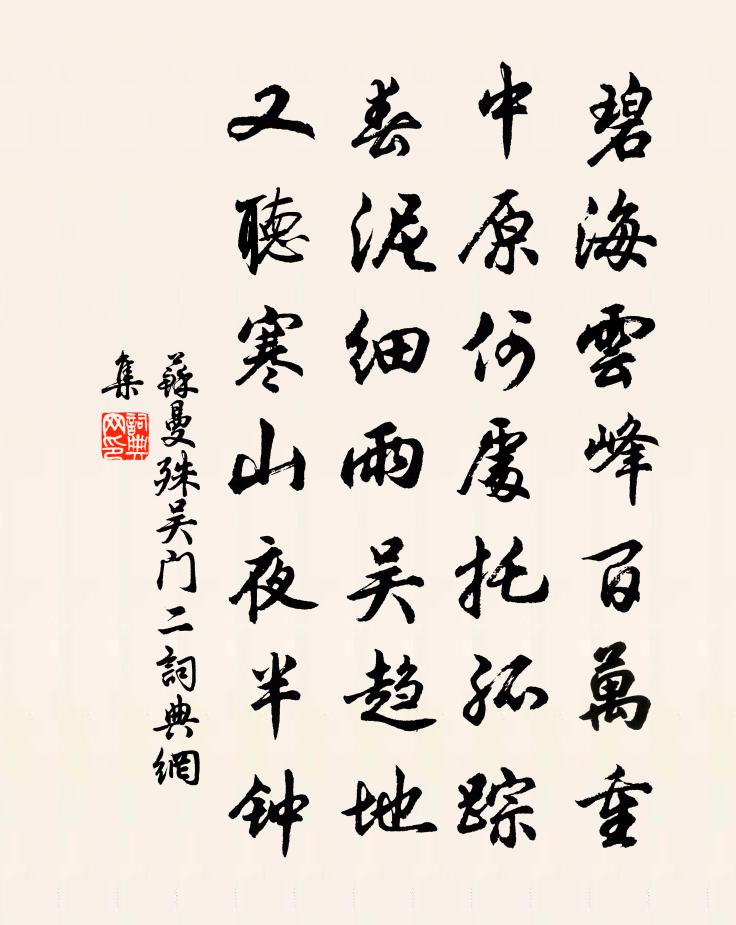 碧海雲峰百萬重
中原何處托孤踪
春泥細雨吴趋地
又聽寒山夜半钟
蘇曼殊吴门二詞典網
集
詞典
网印